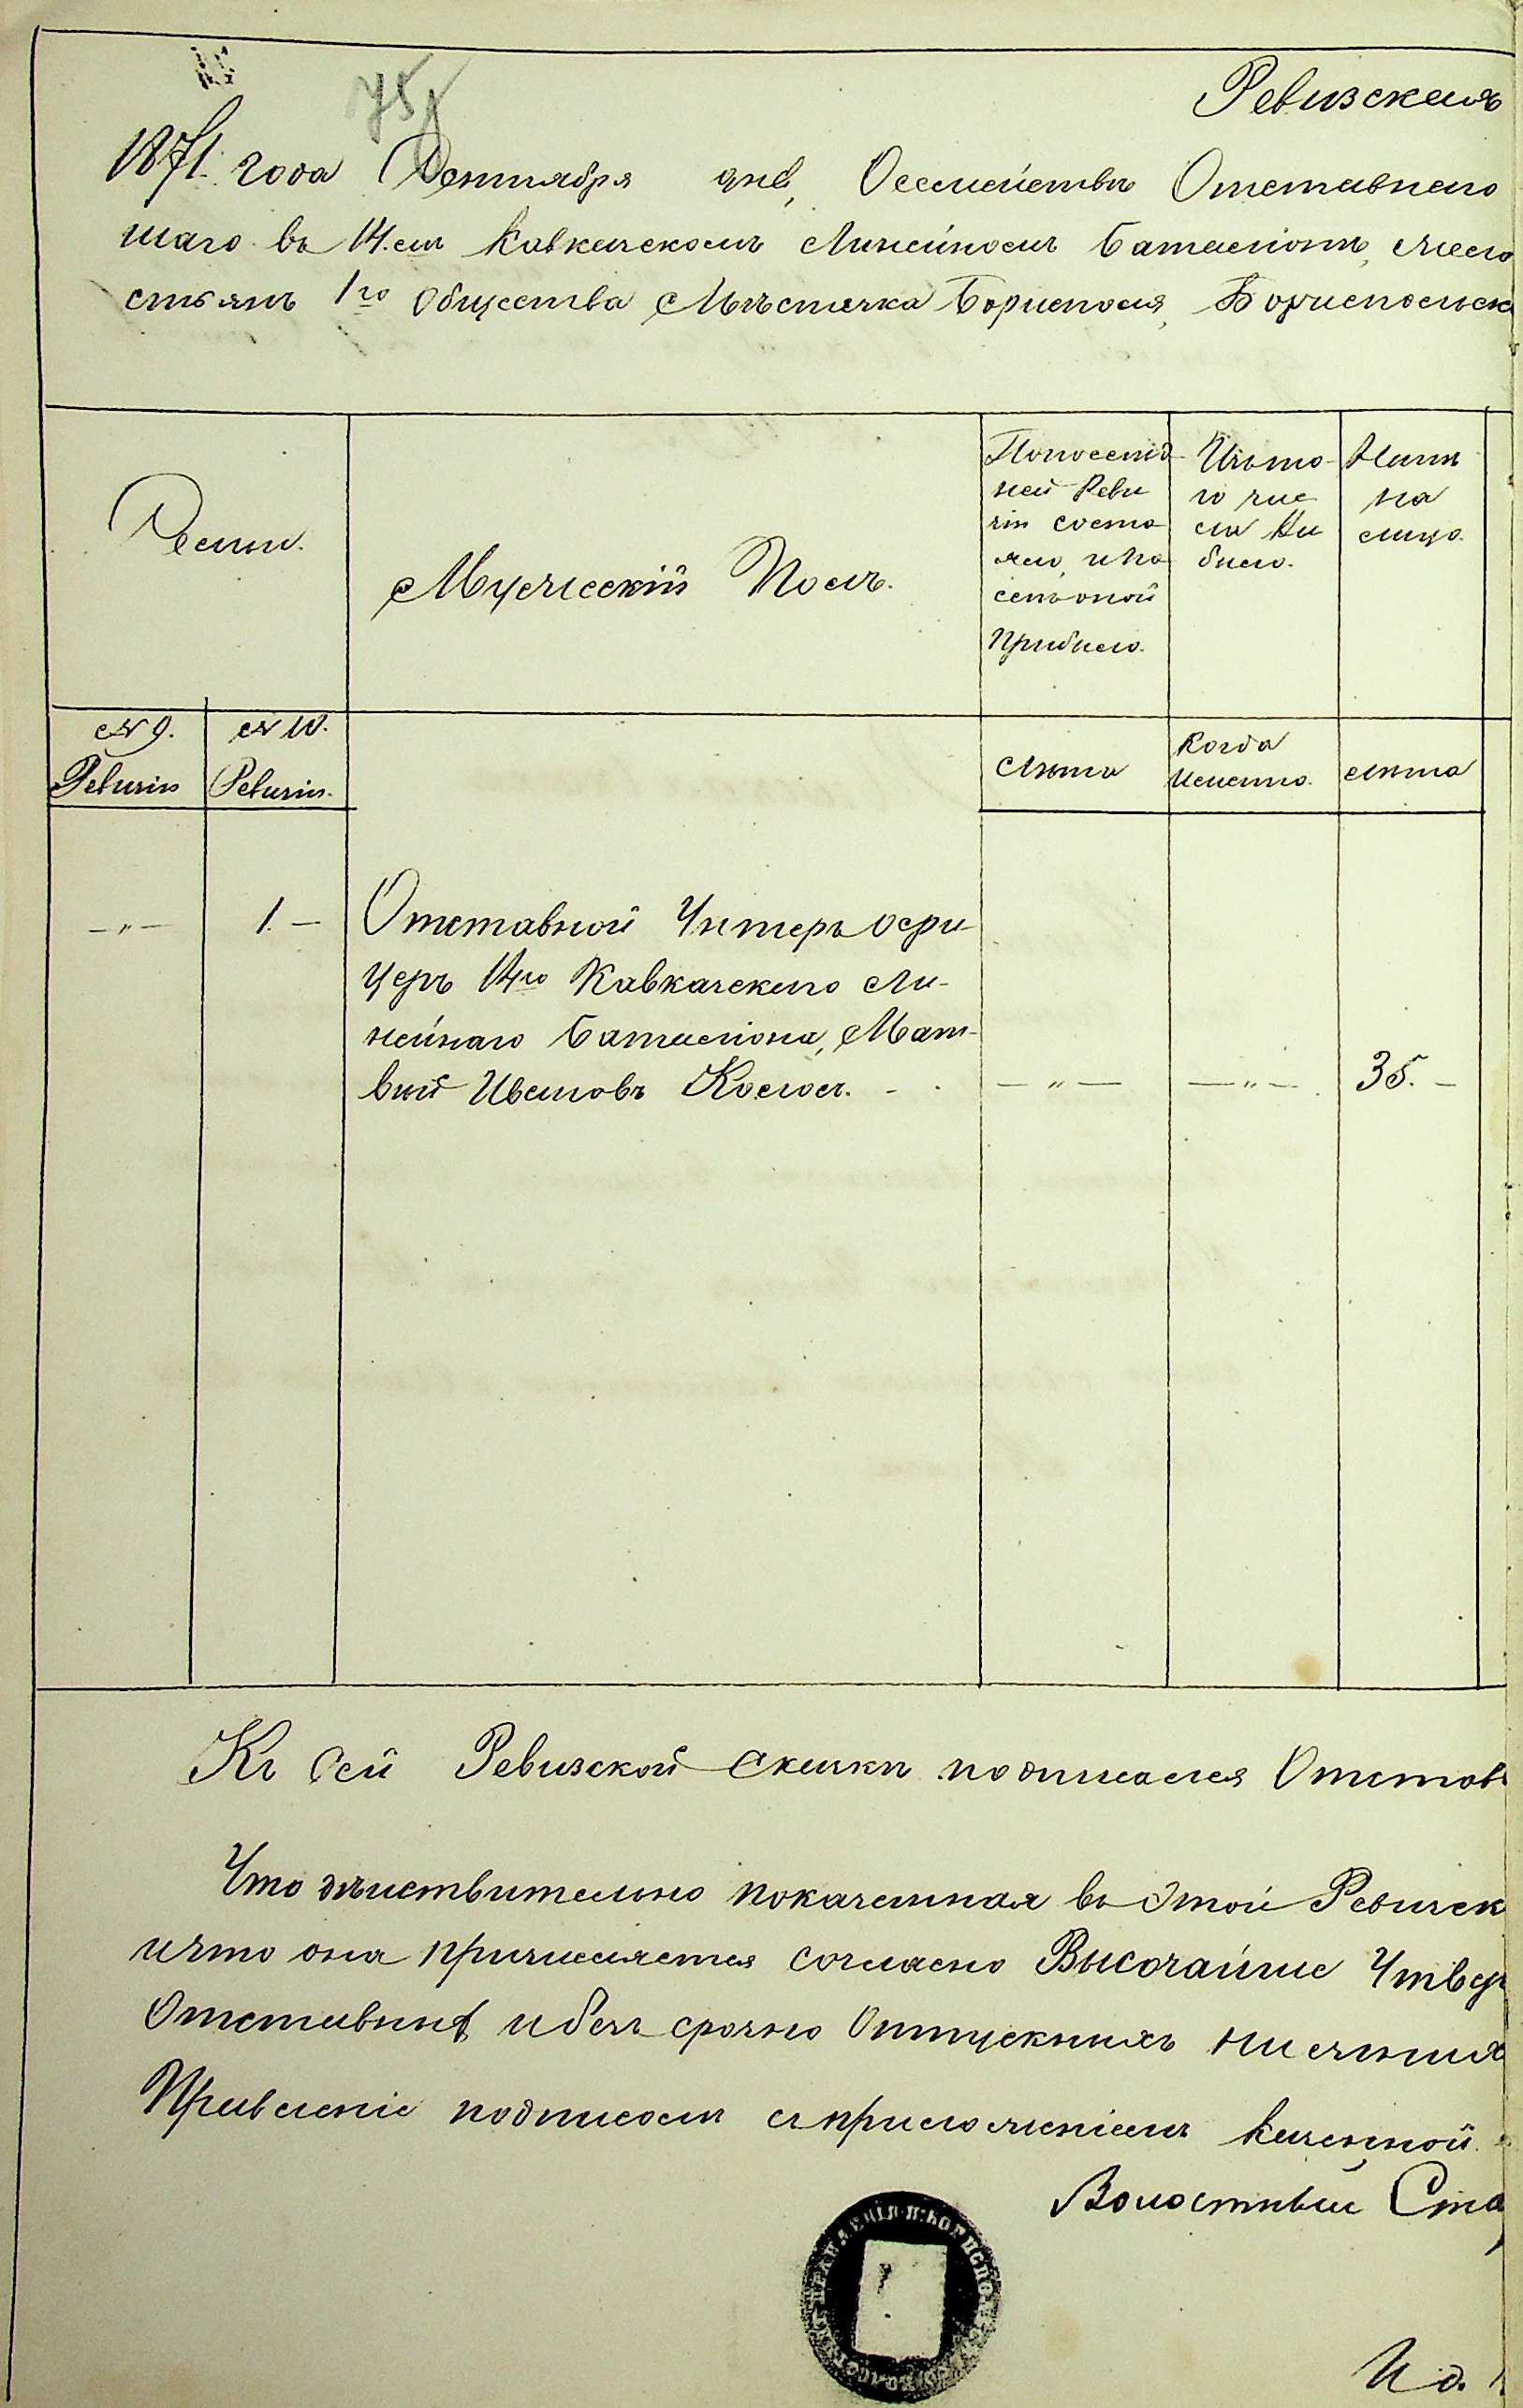 75
Ревизская
1871 года Сентября дня, О семействе Отставнаго
шаго въ 14.мъ Кавказскомъ Линейномъ баталіонѣ, жело
стьянъ 1го Общества Мѣстечка Борисполя, Бориспольск
Семьи.
Мужескій Полъ.
По послѣд-
ней Реви
зіи состо
яло, и по
сель оной
Прибыло.
Изъ то-
го чис
ла Вы
было.
Нынѣ
на
лицо.
№ 9. Ревизіи
№ 10. Ревизіи.
Лѣта
Когда Именно.
Лѣта
—„— 1.— Отставной Унтеръ офи
церъ 14го Кавказскаго Ли-
нейнаго баталіона, Мат-
вѣй Ивановъ Козлов. - —„— —„— 35. —
Къ Сей Ревизской Сказкѣ подписался Отстав
Что дѣйствительно показанная въ Этой Ревизск
и что она причисляется согласно Высочайше Утвер
Отставных и безсрочно Отпускныхъ нижних
Правленіе подписом съ приложеніемъ Казенной
Волостный Ста
И д.